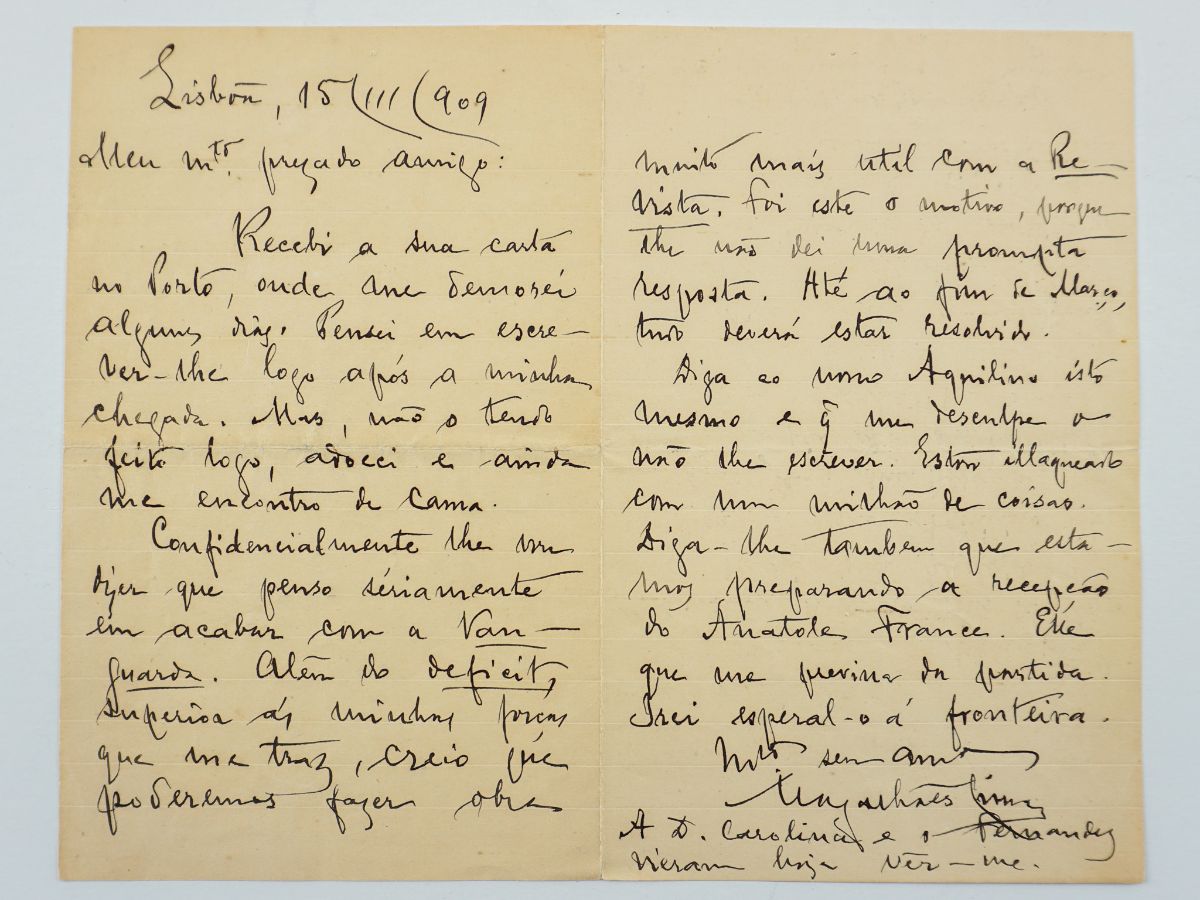 Lisbôa, 15/III/909
Meu mto. prezado amigo:
Recebi a sua carta
no Porto, onde me demorei
alguns dias. Pensei em escre-
ver-lhe logo após a minha
chegada. Mas, não o tendo
feito logo, adoeci e ainda
me encontro de cama.
Confidencialmente lhe vou
dizer que penso sériamente
em acabar com a Van-
guarda. Além do deficit,
superior ás minhas forças
que me traz, creio que
poderemos fazer obra
muito mais util com a Re-
vista. Foi este o motivo, porque
lhe não dei uma prompta
resposta. Até ao fim de Março,
tudo deverá estar resolvido.
Diga ao nosso Aquilino isto
mesmo e q̃ me desculpe o
não lhe escrever. Estou illaqueado
com um milhão de coisas.
Diga-lhe tambem que esta-
mos preparando a recepção
do Anatole France. Elle
que me previna da partida.
Irei esperal-o á fronteira.
Mto. seu amo
Magalhães Lima
A D. Carolina e o Fernandes
vieram hoje vêr-me.